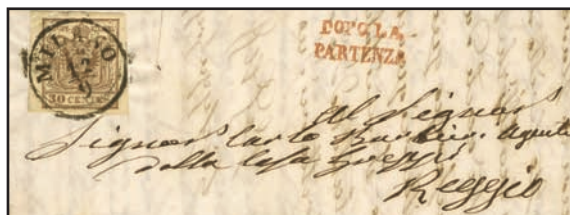 MILANO
12
9
30 CENTES
DOPO LA
PARTENZA
Al Signor
Signor Carlo Barbieri Agente
della Casa Greppi
Reggio